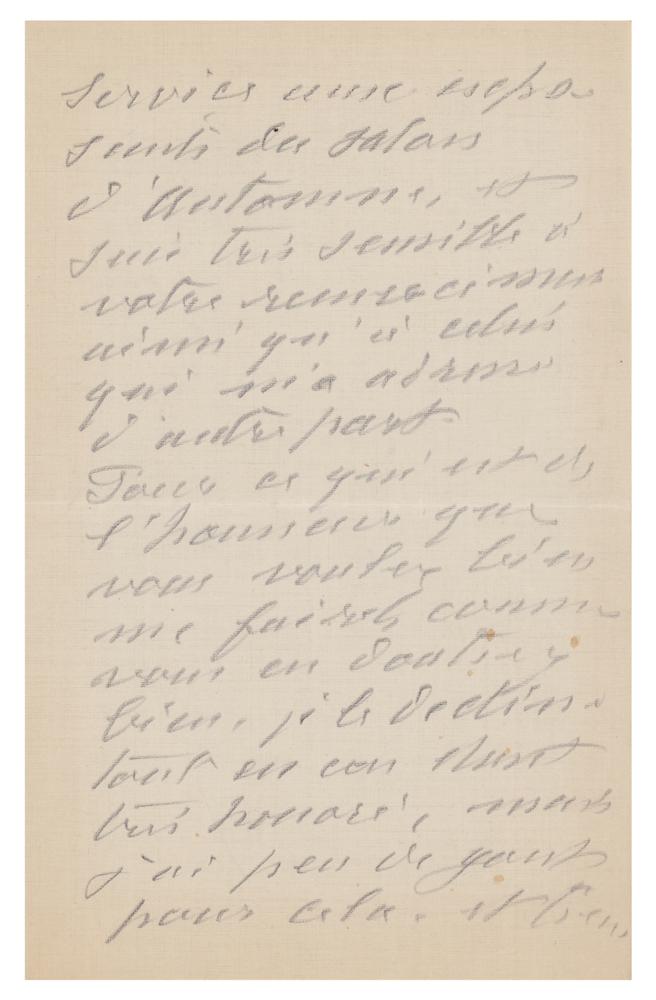 service aux expo
sants du Salon
d'Automne, et
suis très sensible à
votre remerciement
ainsi qu'à celui
qui m'a adressé
d'autre part
Pour ce qui est de
l'honneur que
vous voulez bien
me faire, comme
vous en doutiez
bien, je le décline
tout en en étant
très honoré, mais
j'ai peu de gout
pour cela. et bien